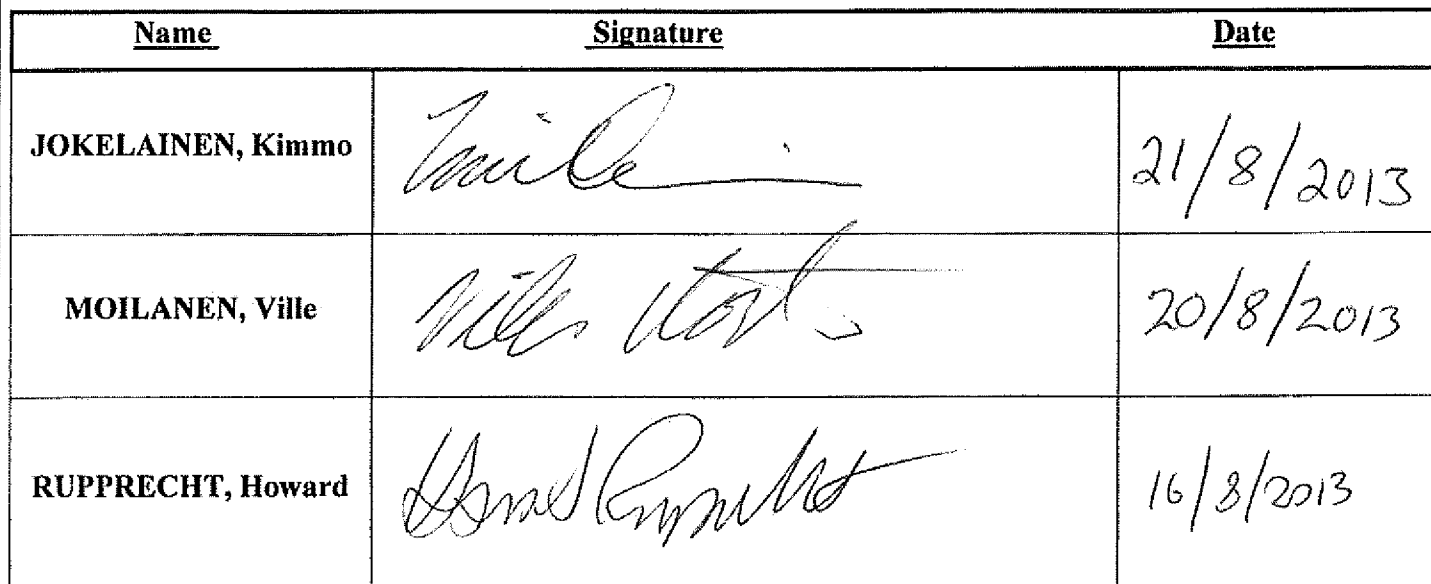 Name Signature Date
JOKELAINEN, Kimmo 21/8/2013
MOILANEN, Ville 20/8/2013
RUPPRECHT, Howard 16/8/2013